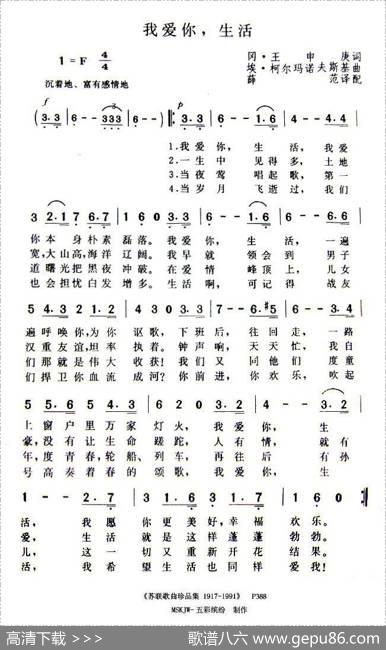 我爱你，生活
1=F 4/4
冈·王申庚词
埃·柯尔玛诺夫斯基曲
薛范译配
沉着地、富有感情地
1.我爱你，生活，我爱
2.一生中见得多，土地
3.当夜莺唱起歌，第一
4.当岁月飞逝过，我们
你本身朴素磊落。我爱你，生活，一遍
宽，大山高，海洋辽阔。我早就领会到男子
道曙光把黑夜冲破。在爱情峰顶上，儿女
也会担忧白发增多。生活啊，可记得战友
遍呼唤你，为你讴歌，下班后，往回走，一路
汉重友谊，坦率执着。钟声响，天天忙，我自
们那就是伟大收获！我们又同他们度童
们捍卫你血流成河？你前进，你欢乐，吹起
上窗户里万家灯火，我爱你，生
豪，没有让生命蹉跎，人有情，就有
年，度青春，轮船、列车，再往后有孙
号高奏着春的颂歌，我爱你，生
活，我愿你更美好，幸福欢乐。
爱，生活就是这样蓬蓬勃勃。
儿，这一切又重新开花结果。
活，我希望生活也同样爱我！
《苏联歌曲珍品集 1917-1991》 P388
MSKJW-五彩缤纷 制作
高清下载 >>>
歌谱八六 www.gepu86.com